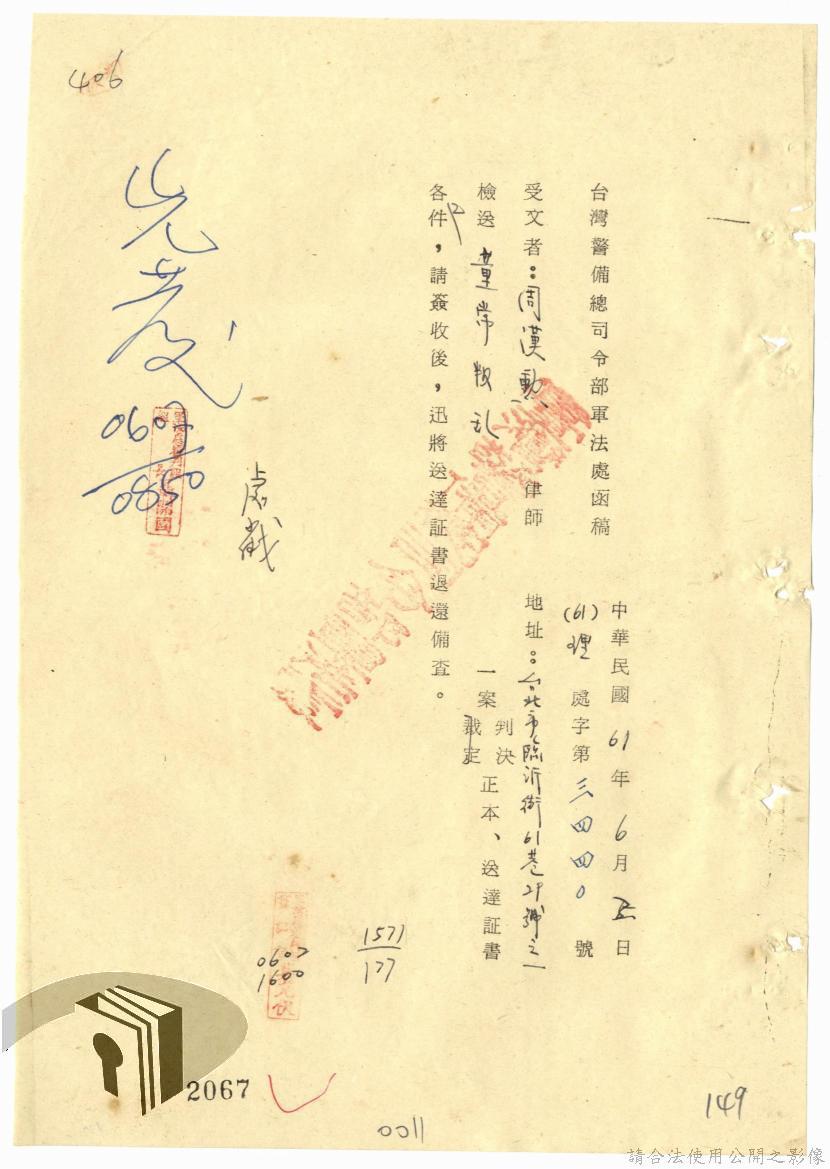 406
台灣警備總司令部軍法處函稿
中華民國61年6月五日
(61)理處字第三四四0號
受文者：周漢勳律師 地址：台北市臨沂街61巷29號之一
檢送童常叛乱一案判決裁定正本、送達証書
各件，請簽收後，迅將送達証書退還備查。
先發
0607
0850
1571
177
0607
1600
2067
0011
149
請合法使用公開之影像